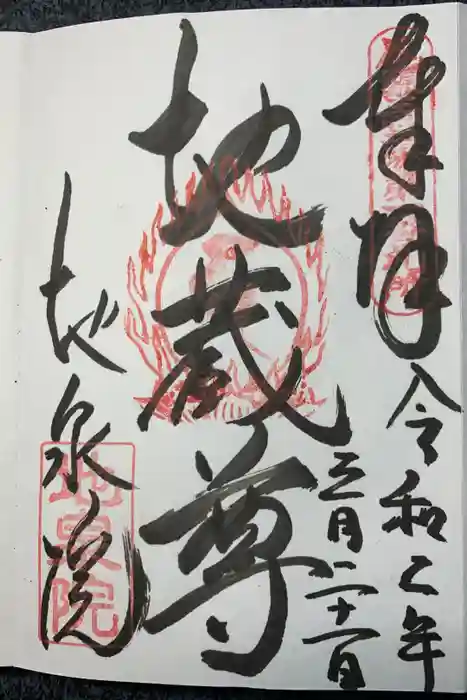 奉拝
令和乙年
三月二十一日
地蔵尊
地泉院
地泉院